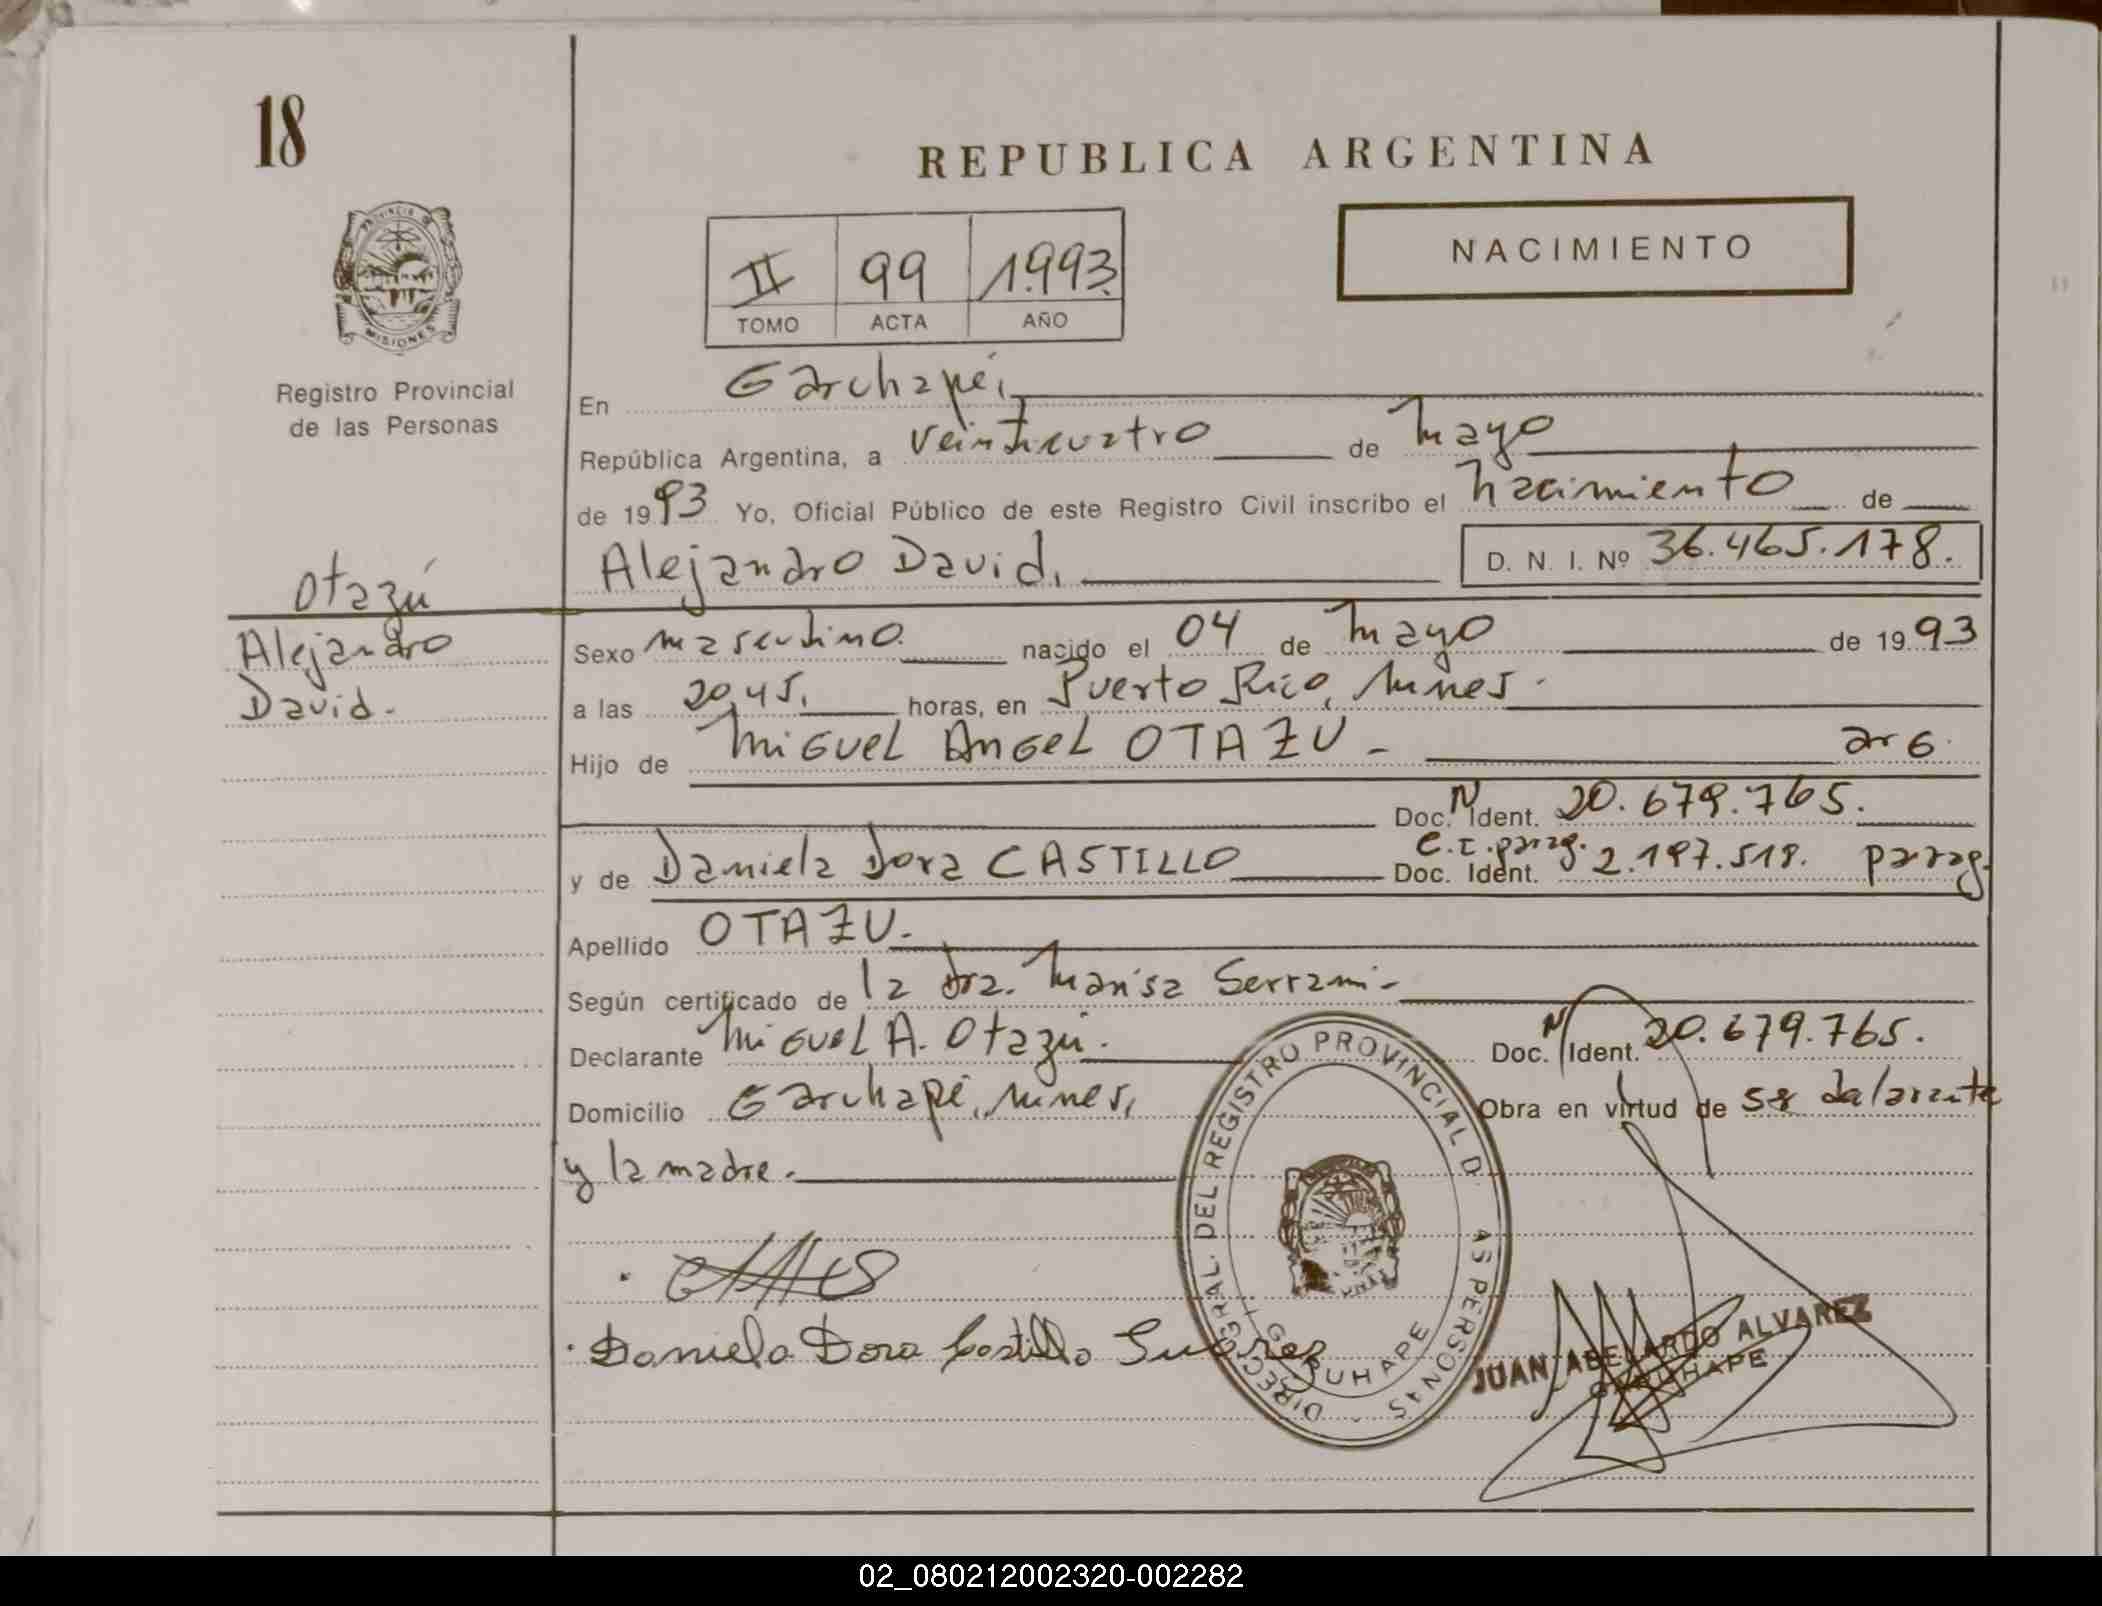 18
REPUBLICA ARGENTINA
NACIMIENTO
II 99 1.993.
TOMO ACTA AÑO
PROVINCIA DE MISIONES
Registro Provincial
de las Personas
En Garuhapé,
República Argentina, a veinticuatro de Mayo
de 1993 Yo, Oficial Público de este Registro Civil inscribo el nacimiento de
Alejandro David, D. N. I. Nº 36.465.178.
Otazú
Alejandro
David.-
Sexo masculino nacido el 04 de Mayo de 1993
a las 20,45, horas, en Puerto Rico, Mnes.
Hijo de MIGUEL ANGEL OTAZU - arg.
Doc. N Ident. 20.679.765.
y de Daniela Dora CASTILLO C.I. parag. Doc. Ident. 2.197.518. parag.
Apellido OTAZU.-
Según certificado de la dra. Marisa Serrami-
Declarante MIGUEL A. Otazú. Doc. N Ident. 20.679.765.
Domicilio Garuhapé, Mnes, Obra en virtud de ser declarante
y la madre.
Daniela Dora Castillo Suárez
DIRECC. GRAL. DEL REGISTRO PROVINCIAL D. AS PERSONAS
GARUHAPE
JUAN ABELARDO ALVAREZ
GARUHAPE
02_080212002320-002282